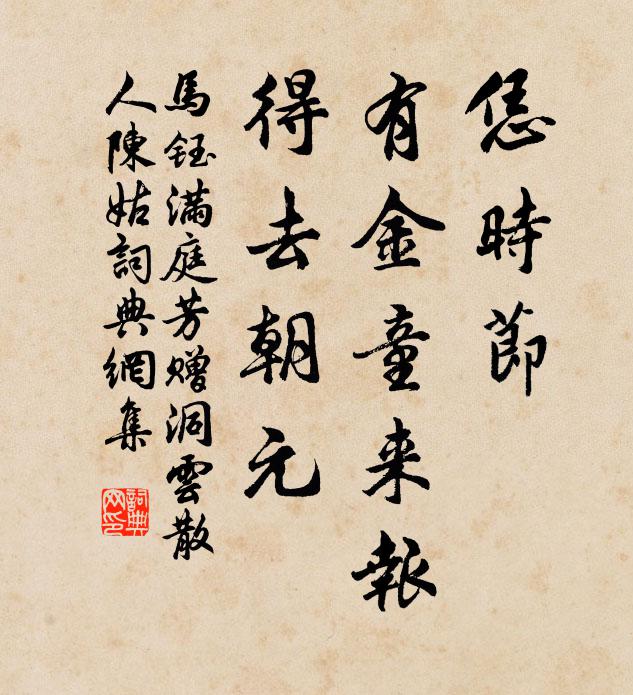 恁時節
有金童来報
得去朝元
馬鈺滿庭芳贈洞雲散
人陳姑詞典網集
詞典
网印